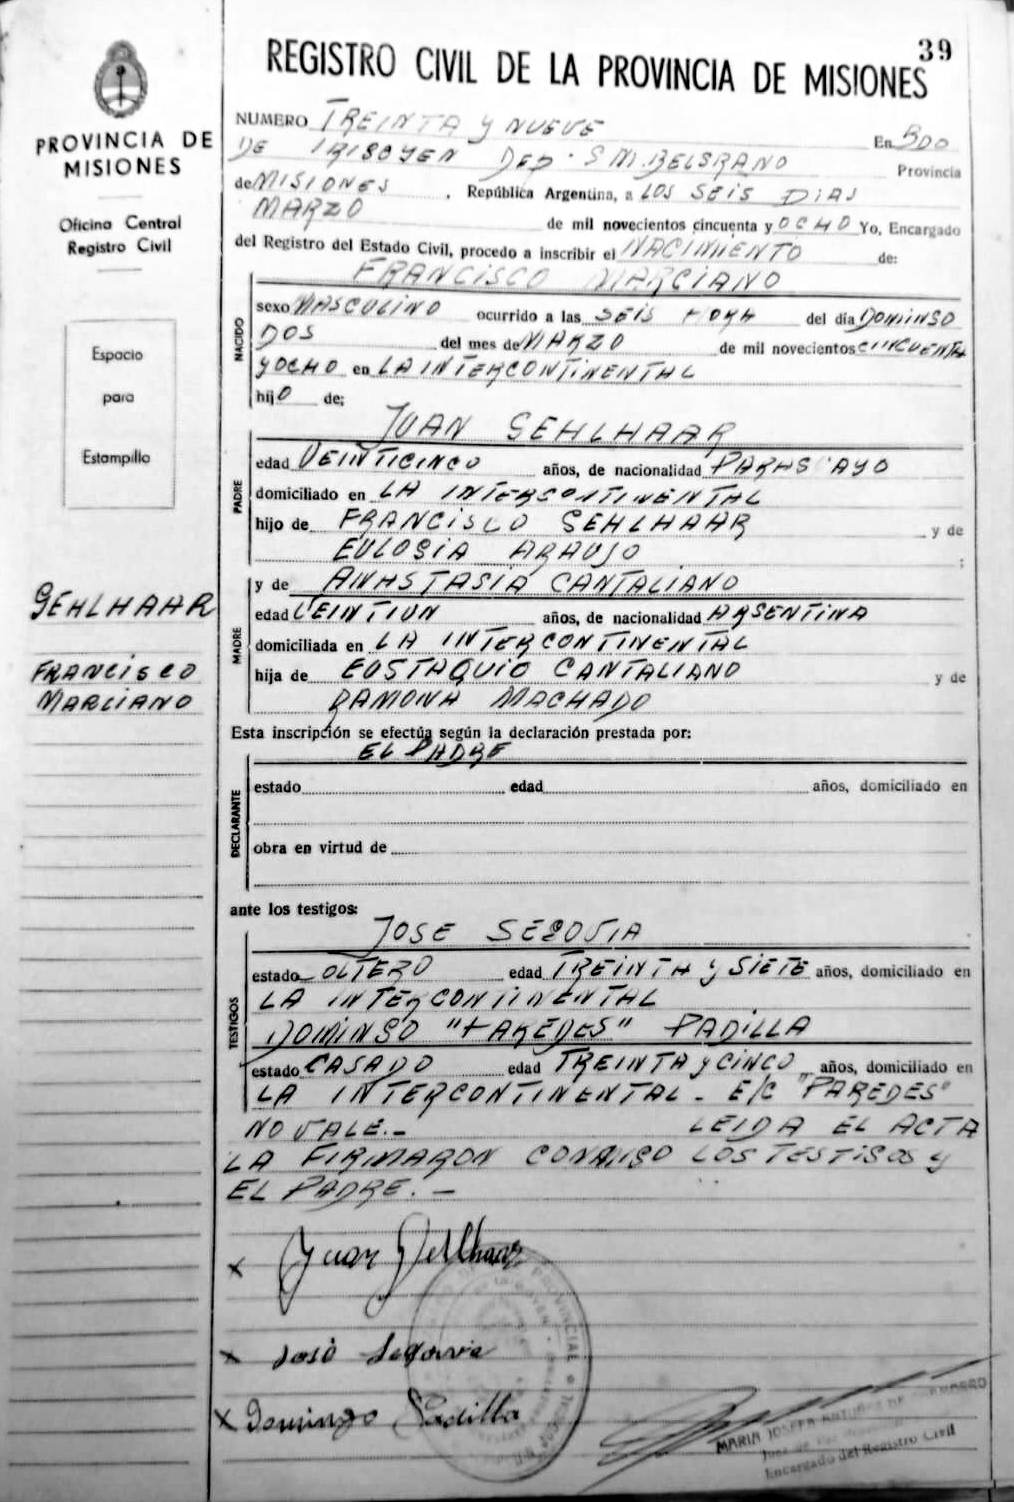 39
REGISTRO CIVIL DE LA PROVINCIA DE MISIONES
PROVINCIA DE
MISIONES
Oficina Central
Registro Civil
Espacio
para
Estampilla
SEHLHAAR
FRANCISCO
MARCIANO
NUMERO TREINTA Y NUEVE En BDO
DE IRIGOYEN DEP. S M. BELGRANO Provincia
de MISIONES , República Argentina, a LOS SEIS DIAS
MARZO de mil novecientos cincuenta y OCHO Yo, Encargado
del Registro del Estado Civil, procedo a inscribir el NACIMIENTO de:
FRANCISCO MARCIANO
NACIDO
sexo MASCULINO ocurrido a las SEIS HORA del día DOMINGO
DOS del mes de MARZO de mil novecientos CINCUENTA
Y OCHO en LA INTERCONTINENTAL
hijO de;
JUAN SEHLHAAR
PADRE
edad VEINTICINCO años, de nacionalidad PARAGUAYO
domiciliado en LA INTERCONTINENTAL
hijo de FRANCISCO SEHLHAAR y de
EULOGIA ARAUJO ;
y de ANASTASIA CANTALIANO
MADRE
edad VEINTIUN años, de nacionalidad ARGENTINA
domiciliada en LA INTERCONTINENTAL
hija de EUSTAQUIO CANTALIANO y de
RAMONA MACHADO
Esta inscripción se efectúa según la declaración prestada por:
EL PADRE
DECLARANTE
estado edad años, domiciliado en
obra en virtud de
ante los testigos:
JOSE SEGOVIA
TESTIGOS
estado OLTERO edad TREINTA Y SIETE años, domiciliado en
LA INTERCONTINENTAL
DOMINGO "PAREDES" PADILLA
estado CASADO edad TREINTA Y CINCO años, domiciliado en
LA INTERCONTINENTAL - E/C "PAREDES"
NO VALE.- LEIDA EL ACTA
LA FIRMARON CONMIGO LOS TESTIGOS Y
EL PADRE. -
x Juan Sehlhaar
x José Segovia
x Domingo Padilla
PROVINCIAL
MARIA JOSEFA ANTUÑEZ DE
Juez de Paz
Encargado del Registro Civil